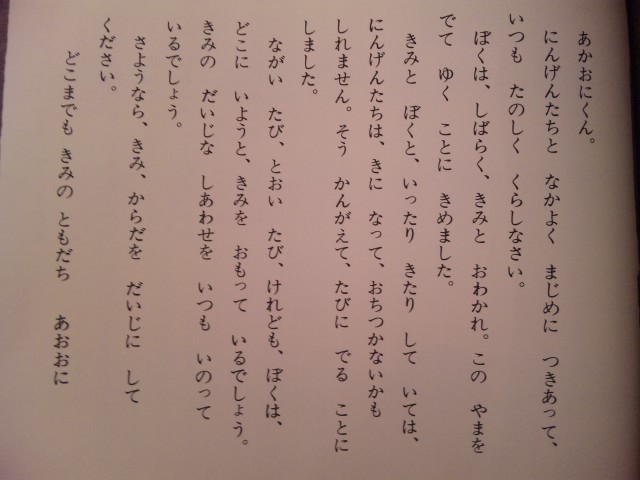 あかおにくん。
にんげんたちと なかよく まじめに つきあって、
いつも たのしく くらしなさい。
ぼくは、しばらく、きみと おわかれ。この やまを
でて ゆく ことに きめました。
きみと ぼくと、いったり きたり して いては、
にんげんたちは、きに なって、おちつかないかも
しれません。そう かんがえて、たびに でる ことに
しました。
ながい たび、とおい たび、けれども、ぼくは、
どこに いようと、きみを おもって いるでしょう。
きみの だいじな しあわせを いつも いのって
いるでしょう。
さようなら、きみ、からだを だいじに して
ください。
どこまでも きみの ともだち あおおに